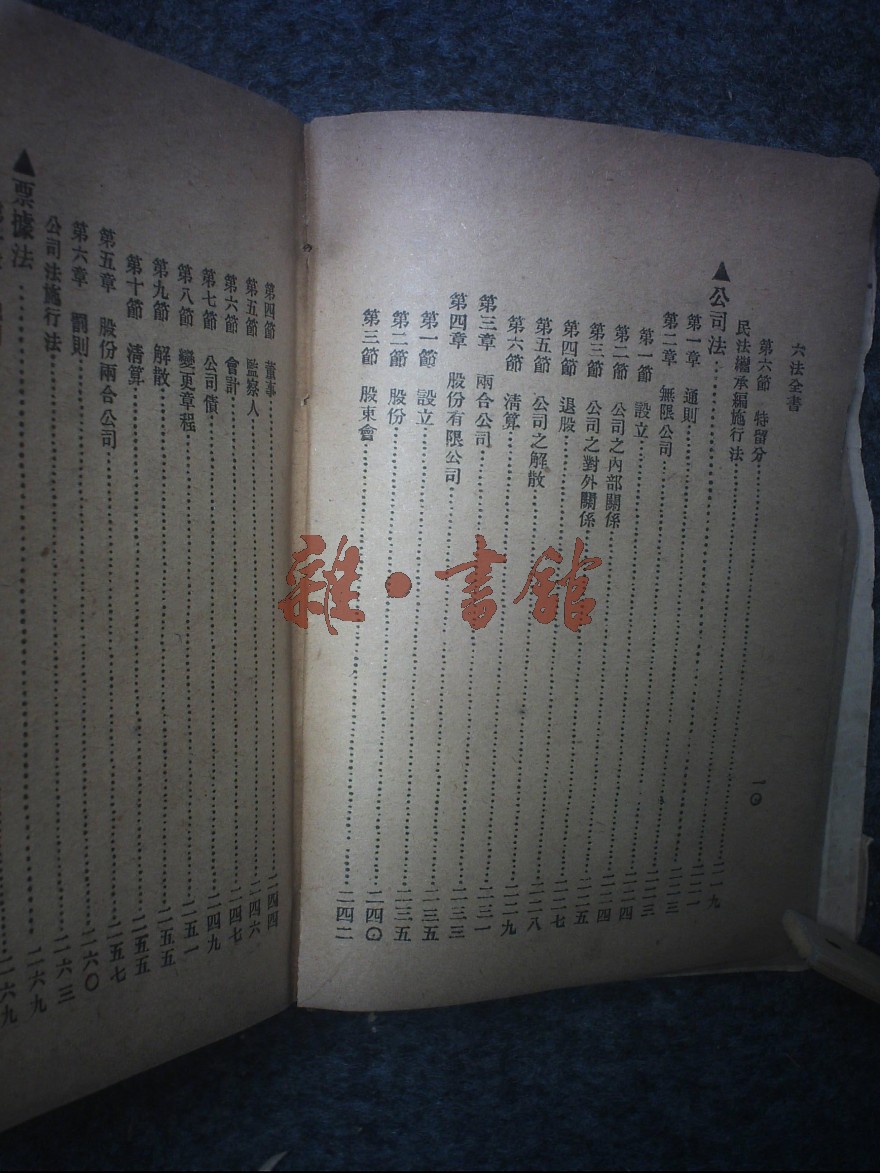 六法全書 一〇
第六節 特留分……二一九
民法繼承編施行法……二二一
▲公司法……二二三
第一章 通則……二二三
第二章 無限公司……二二四
第一節 設立……二二四
第二節 公司之內部關係……二二五
第三節 公司之對外關係……二二七
第四節 退股……二二八
第五節 公司之解散……二二九
第六節 清算……二三一
第三章 兩合公司……二三三
第四章 股份有限公司……二三五
第一節 設立……二三五
第二節 股份……二四〇
第三節 股東會……二四二
第四節 董事……二四四
第五節 監察人……二四六
第六節 會計……二四七
第七節 公司債……二四九
第八節 變更章程……二五一
第九節 解散……二五五
第十節 清算……二五五
第五章 股份兩合公司……二五七
第六章 罰則……二六〇
公司法施行法……二六三
▲票據法……二六九
二六九
雜·書館